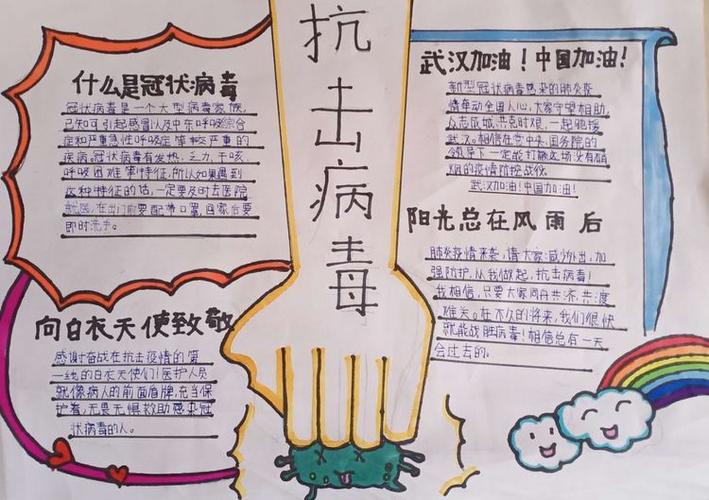 抗击病毒
什么是冠状病毒
冠状病毒是一个大型病毒家族,
已知可引起感冒以及中东呼吸综合
症和严重急性呼吸症等较严重的
疾病,冠状病毒有发热、乏力、干咳、
呼吸困难等特征,所以如果遇到
这种特征的话,一定要及时去医院
就医,在出门前要配带口罩,回家后要
即时洗手。
向白衣天使致敬
感谢奋战在抗击疫情的第
一线的白衣天使们!医护人员
就像病人的前面盾牌,充当保
护着,无畏无惧救助感染冠
状病毒的人。
武汉加油!中国加油!
新型冠状病毒感染的肺炎疫
情牵动全国人心,大家守望相助,
众志成城,共克时艰,一起驰援
武汉。相信在党中央、国务院的
领导下一定能打赢这场没有硝
烟的疫情防控战役
武汉加油!中国加油!
阳光总在风雨后
肺炎疫情来袭,请大家:减少外出,加
强防护,从我做起,抗击病毒!
我相信,只要大家同舟共济,共度
难关。在不久的将来,我们很快
就能战胜病毒!相信总有一天
会过去的。